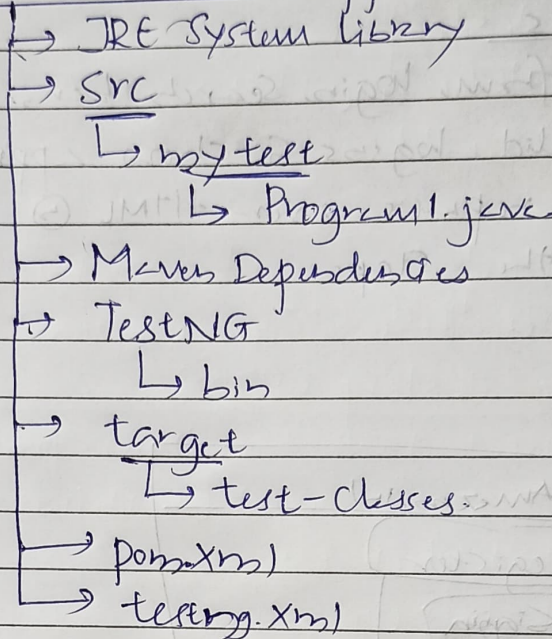 JRE System library
src
my test
Program1.java
Maven Dependencies
TestNG
bin
target
test-classes.
pom.xml
testng.xml